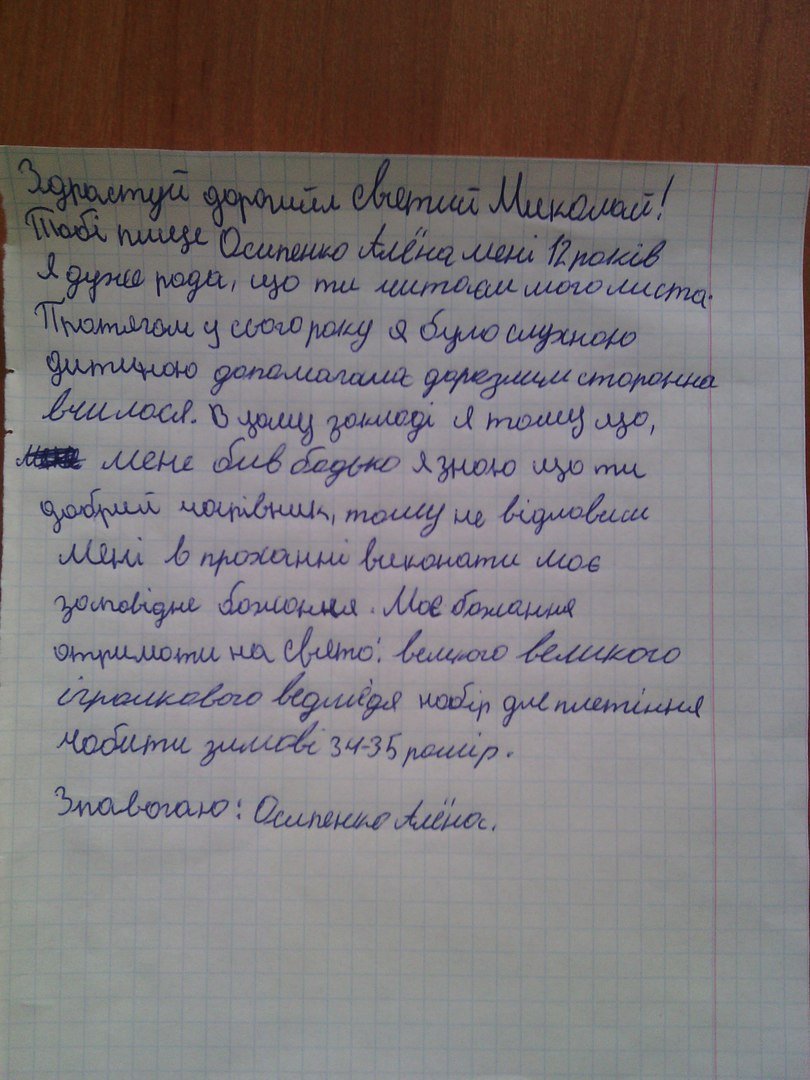 Здраствуй дорогийй Святий Миколай!
Тобі пише Осипенко Алёна мені 12 років
Я дуже рада, що ти читаєш мого листа.
Протягом усього року я було слухною
дитиною допомагала дорозлим старанна
вчилася. В цому закладі я тому що,
мене бив бадько я знаю що ти
добрий чарівник, тому не відмовиш
Мені в проханні виконати моє
заповідне бажання. Моє бажання
отримати на свято: великого великого
ігралкового ведмедя набір для плетіння
чобити зимові 34-35 розмір.
З павогаю: Осипенко Алёна.